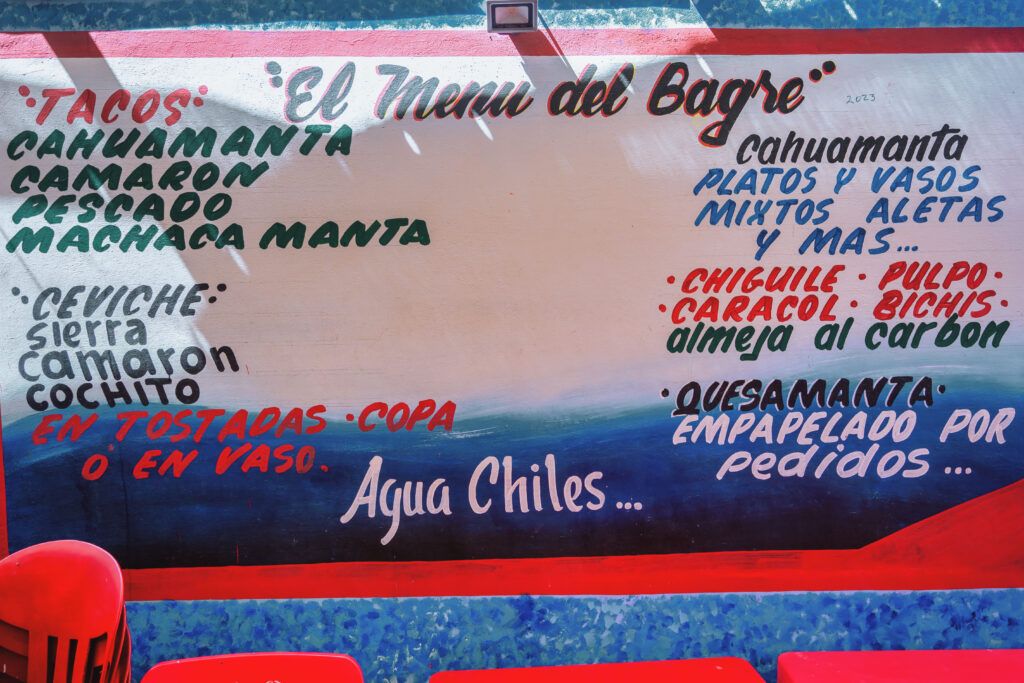 "El Menu del Bagre"
2023
TACOS
CAHUAMANTA
CAMARON
PESCADO
MACHACA MANTA
CEVICHE
sierra
camaron
COCHITO
EN TOSTADAS · COPA
O EN VASO.
Agua Chiles...
cahuamanta
PLATOS Y VASOS
MIXTOS ALETAS
Y MAS...
· CHIGUILE · PULPO ·
· CARACOL · BICHIS ·
almeja al carbon
· QUESAMANTA ·
EMPAPELADO POR
pedidos ...